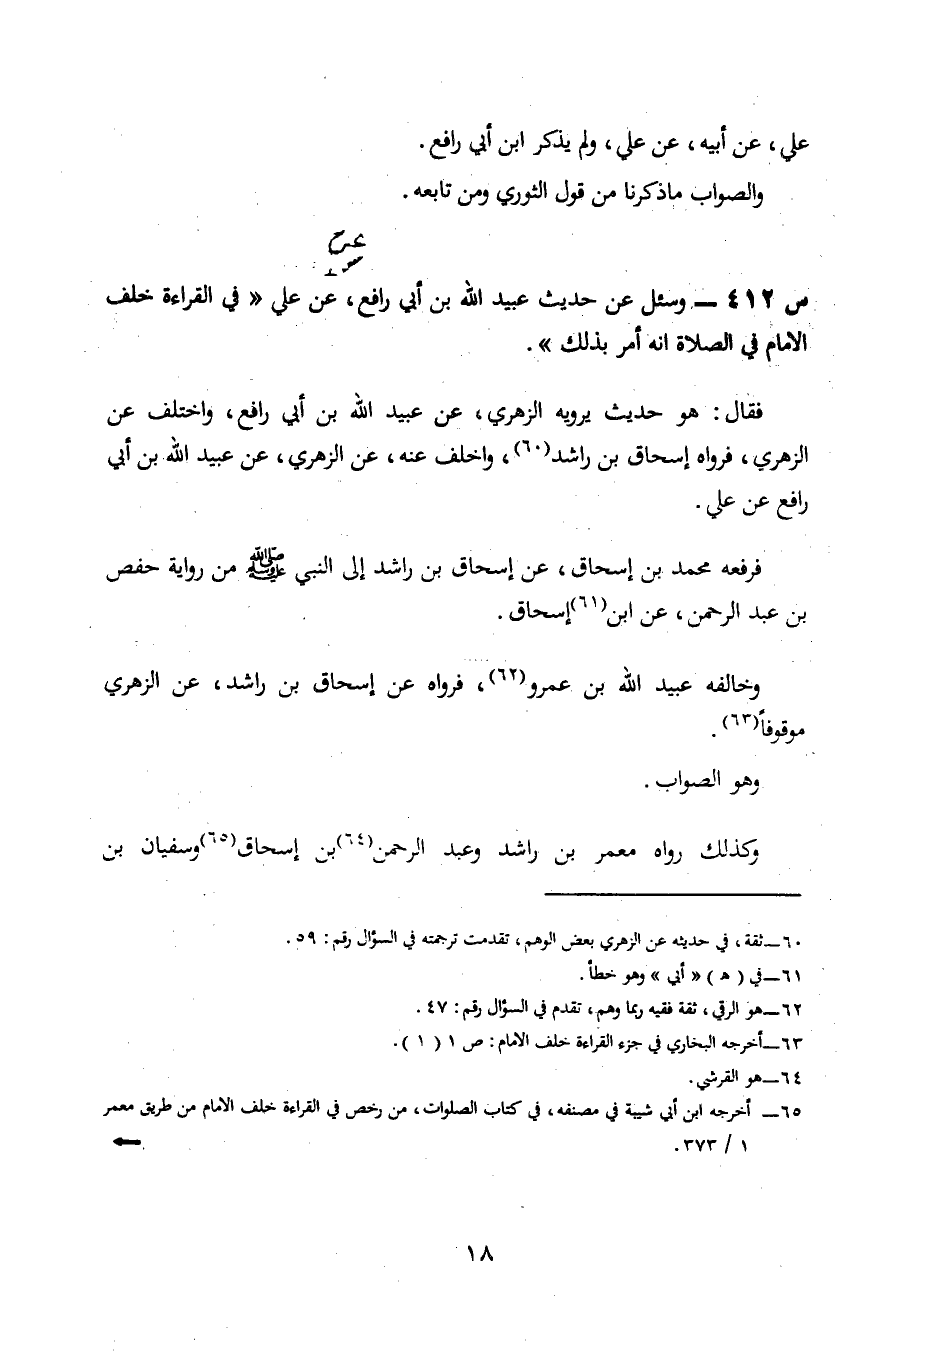 علي، عن أبيه، عن علي، ولم يذكر ابن أبي رافع.
والصواب ماذكرنا من قول الثوري ومن تابعه.
س ٤١٢ ــ وسئل عن حديث عبيد الله بن أبي رافع، عن علي « في القراءة خلف
الامام في الصلاة انه أمر بذلك ».
فقال: هو حديث يرويه الزهري، عن عبيد الله بن أبي رافع، واختلف عن
الزهري، فرواه إسحاق بن راشد(٦٠)، واخلف عنه، عن الزهري، عن عبيد الله بن أبي
رافع عن علي.
فرفعه محمد بن إسحاق، عن إسحاق بن راشد إلى النبي ﷺ من رواية حفص
بن عبد الرحمن، عن ابن(٦١)إسحاق.
وخالفه عبيد الله بن عمرو(٦٢)، فرواه عن إسحاق بن راشد، عن الزهري
موقوفاً(٦٣).
وهو الصواب.
وكذلك رواه معمر بن راشد وعبد الرحمن(٦٤)بن إسحاق(٦٥)وسفيان بن
٦٠ــثقة، في حديثه عن الزهري بعض الوهم، تقدمت ترجمته في السؤال رقم: ٥٩.
٦١ــفي ( هـ ) « أبي » وهو خطأ.
٦٢ــهو الرقي، ثقة فقيه ربما وهم، تقدم في السؤال رقم: ٤٧.
٦٣ــأخرجه البخاري في جزء القراءة خلف الامام: ص ١ ( ١ ).
٦٤ــهو القرشي.
٦٥ــ أخرجه ابن أبي شيبة في مصنفه، في كتاب الصلوات، من رخص في القراءة خلف الامام من طريق معمر
١ / ٣٧٣.
١٨